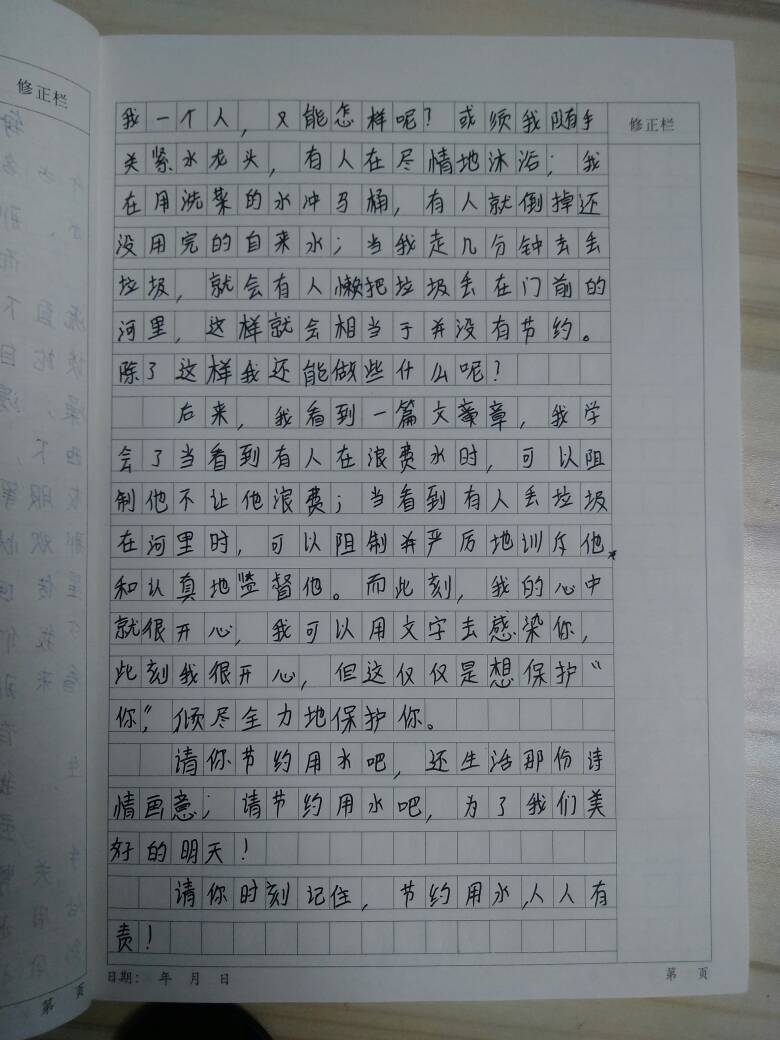 修正栏
我一个人，又能怎样呢？或须我随手
修正栏
关紧水龙头，有人在尽情地沐浴；我
在用洗菜的水冲马桶，有人就倒掉还
没用完的自来水；当我走几分钟去丢
垃圾，就会有人懒把垃圾丢在门前的
河里，这样就会相当于并没有节约。
除了这样我还能做些什么呢？
后来，我看到一篇文章，我学
会了当看到有人在浪费水时，可以阻
制他不让他浪费；当看到有人丢垃圾
在河里时，可以阻制并严厉地训斥他，
和认真地监督他。而此刻，我的心中
就很开心，我可以用文字去感染你，
此刻我很开心，但这仅仅是想保护“
你”，倾尽全力地保护你。
请你节约用水吧，还生活那份诗
情画意；请节约用水吧，为了我们美
好的明天！
请你时刻记住，节约用水，人人有
责！
日期： 年 月 日
第 页
第 页